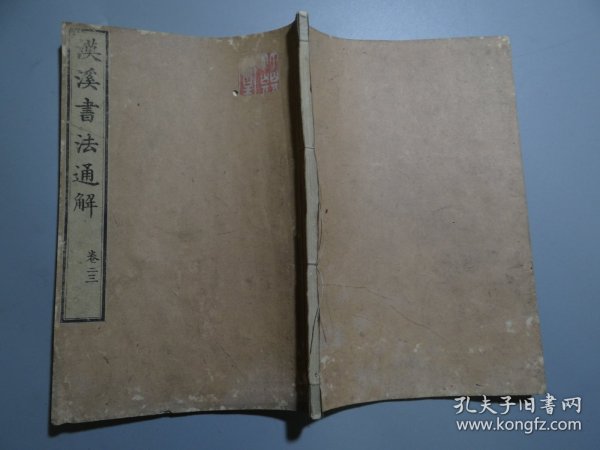 漠溪書法通解
卷二三
孔夫子旧書网
www.kongfz.com